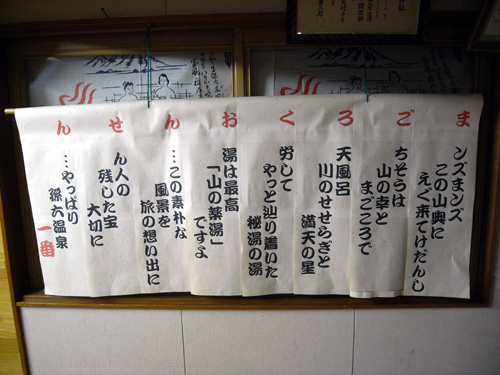 まごろくおんせん
ンズまンズ
この山奥に
えぐ来てけだんし
ちそうは
山の幸と
まごころで
天風呂
川のせせらぎと
満天の星
労して
やっと辿り着いた
秘湯の湯
湯は最高
「山の薬湯」ですよ
…この素朴な
風景を
旅の想い出に
ん人の
残した宝
大切に
…やっぱり
孫六温泉
一番